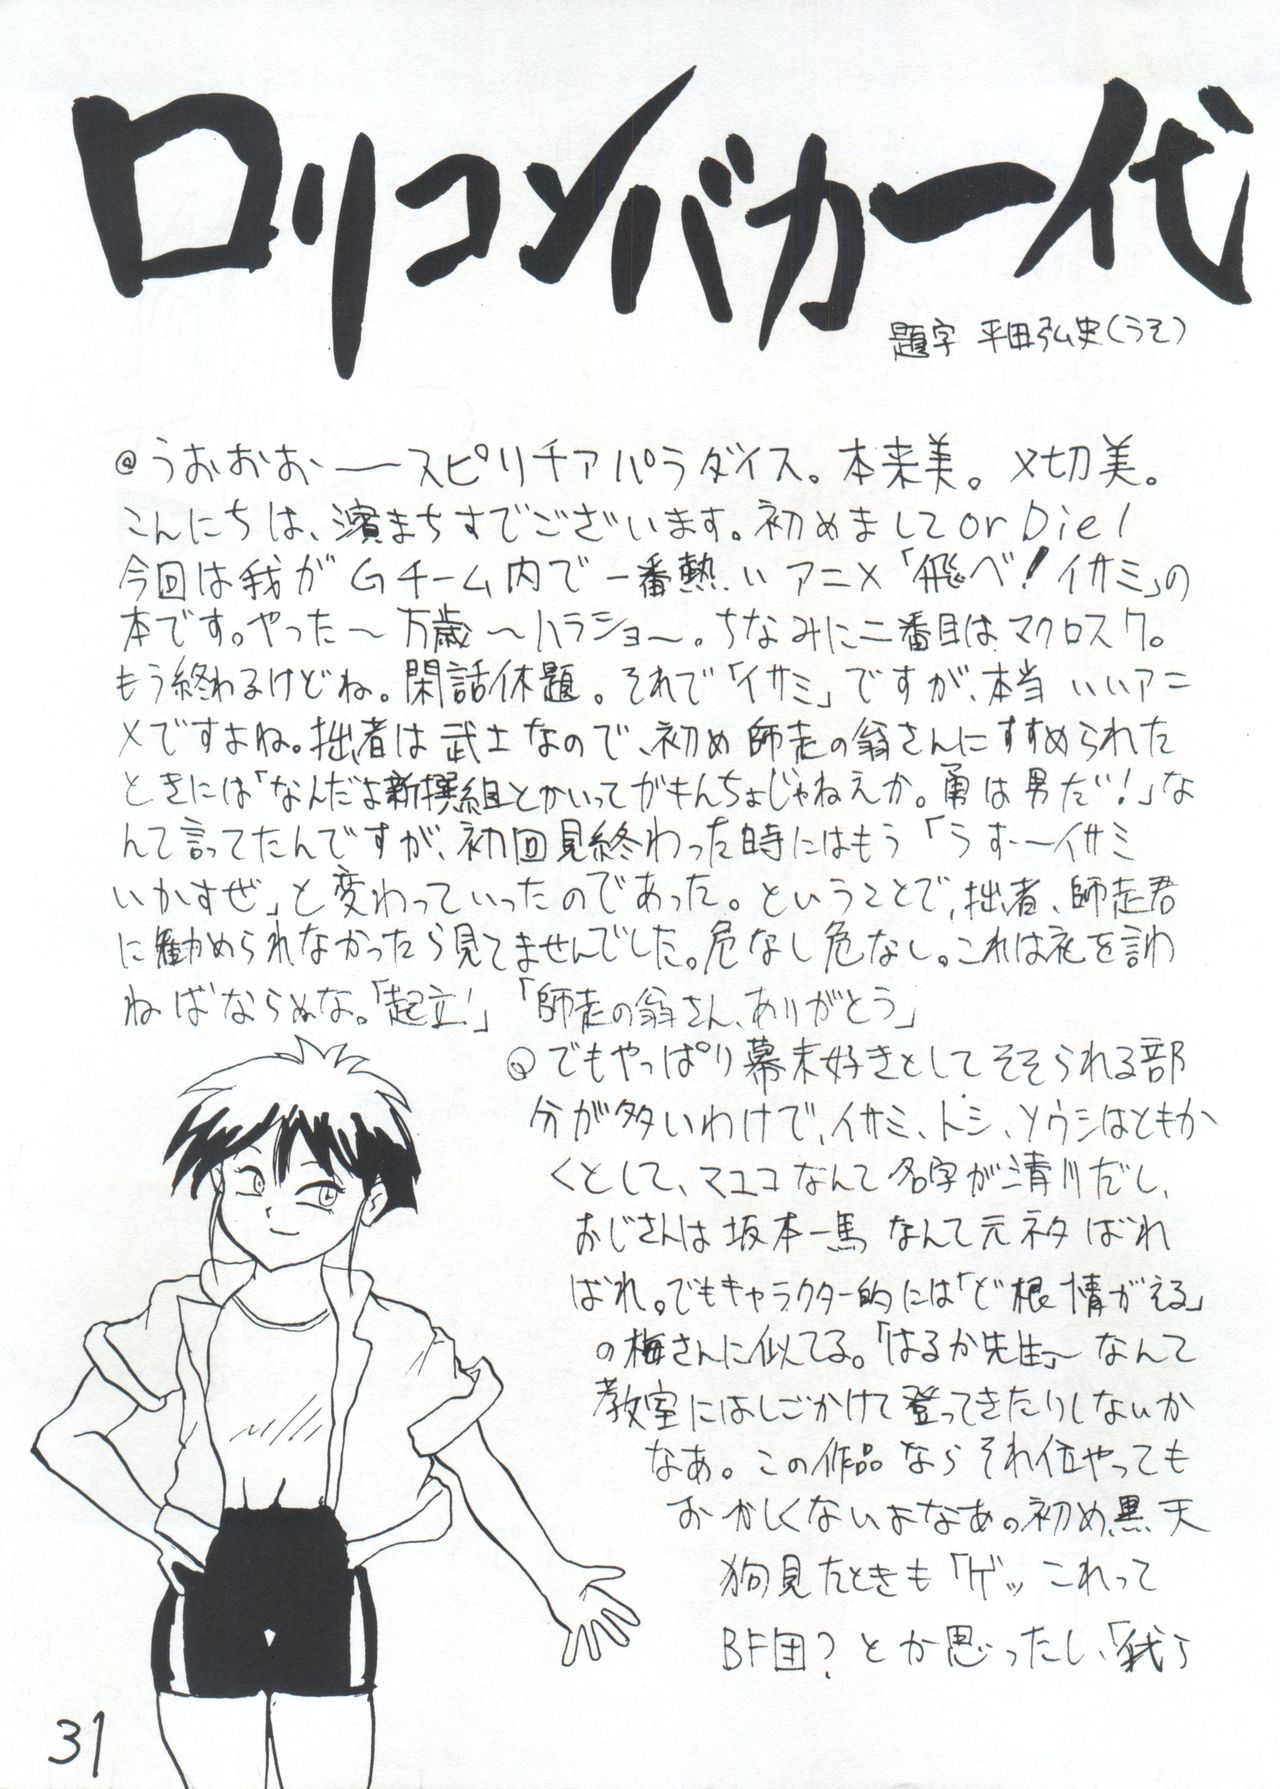 ロリコンバカ一代
題字 平田弘史(うそ)
@うおおお――スピリチアパラダイス。本来美。〆切美。
こんにちは、濱まちすでございます。初めまして or Die!
今回は我がGチーム内で一番熱いアニメ「飛べ!イサミ」の
本です。やった〜万歳〜ハラショ〜。ちなみに二番目はマクロス7。
もう終わるけどね。閑話休題。それで「イサミ」ですが、本当いいアニ
メですよね。拙者は武士なので、初め師走の翁さんにすすめられた
ときには「なんだよ新撰組とかいってがきんちょじゃねえか。勇は男だ!」な
んて言ってたんですが、初回見終わった時にはもう「うす〜イサミ
いかすぜ」と変わっていったのであった。ということで、拙者、師走君
に勧められなかったら見てませんでした。危なし危なし。これは礼を言わ
ねばならぬな。「起立!」「師走の翁さん、ありがとう」
@でもやっぱり幕末好きとしてそそられる部
分が多いわけで、イサミ、トシ、ソウシはともか
くとして、マユコなんて名字が清川だし、
おじさんは坂本一馬なんて元ネタばれ
ばれ。でもキャラクター的には「ど根情がえる」
の梅さんに似てる。「はるか先生」〜なんて
教室にはしごかけて登ってきたりしないか
なあ。この作品ならそれ位やっても
おかしくないよなあ。初め、黒天
狗見たときも「ゲッこれって
BF団?とか思ったし、「我ら
31